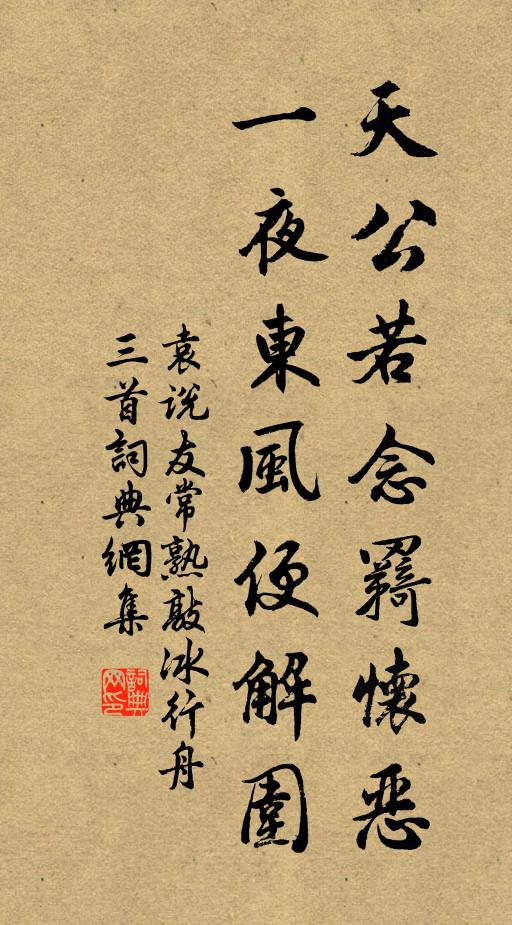 天公若念羇懷惡
一夜東風便解圍
袁说友常熟敲冰行舟
三首詞典網集
詞典网印